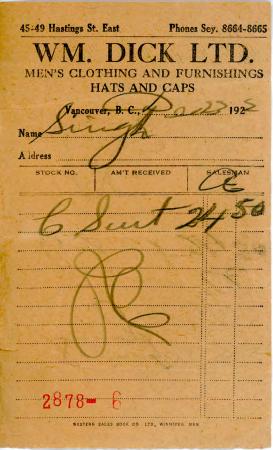 45-49 Hastings St. East Phones Sey. 8664-8665
WM. DICK LTD.
MEN'S CLOTHING AND FURNISHINGS
HATS AND CAPS
Vancouver, B. C., 23 192
Name Singh
Address
STOCK NO. AM'T RECEIVED SALESMAN
C Suit 24 50
2878- 6
WESTERN SALES BOOK CO. LTD., WINNIPEG, MAN.